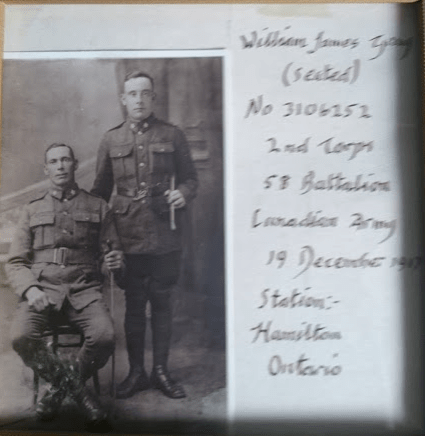 William James
(seated)
No 3106252
2nd Corps
58 Battalion
Canadian Army
19 December 1917
Station:-
Hamilton
Ontario